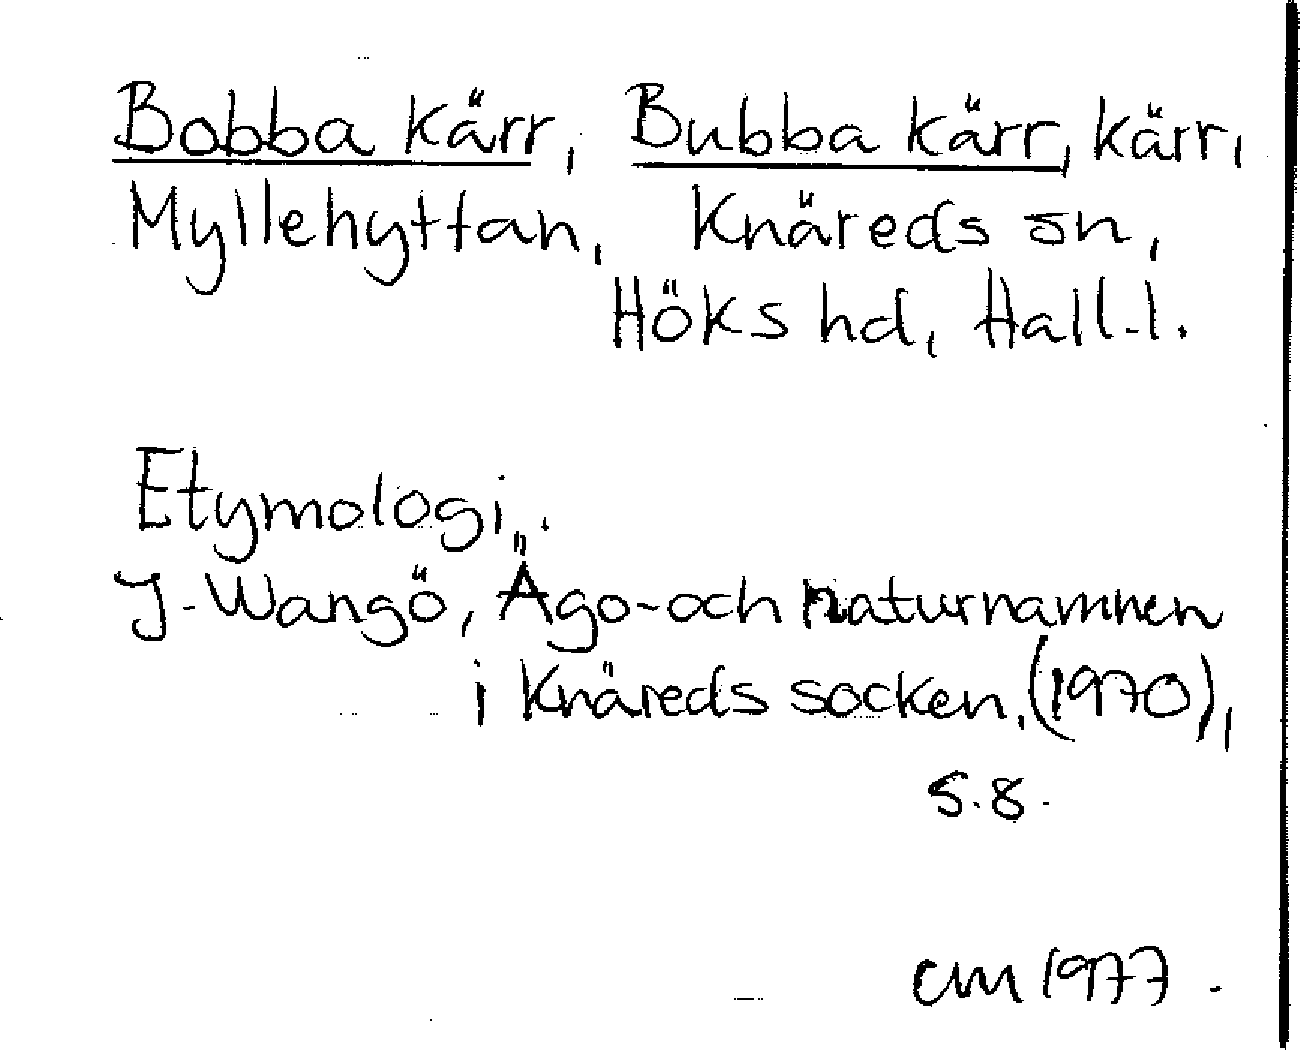 Bobba kärr, Bubba kärr, kärr,
Myllehyttan, Knäreds sn,
Höks hd, Hall.l.
Etymologi.
J. Wangö, Ägo- och naturnamnen
i Knäreds socken, (1970),
s. 8.
CM 1977.